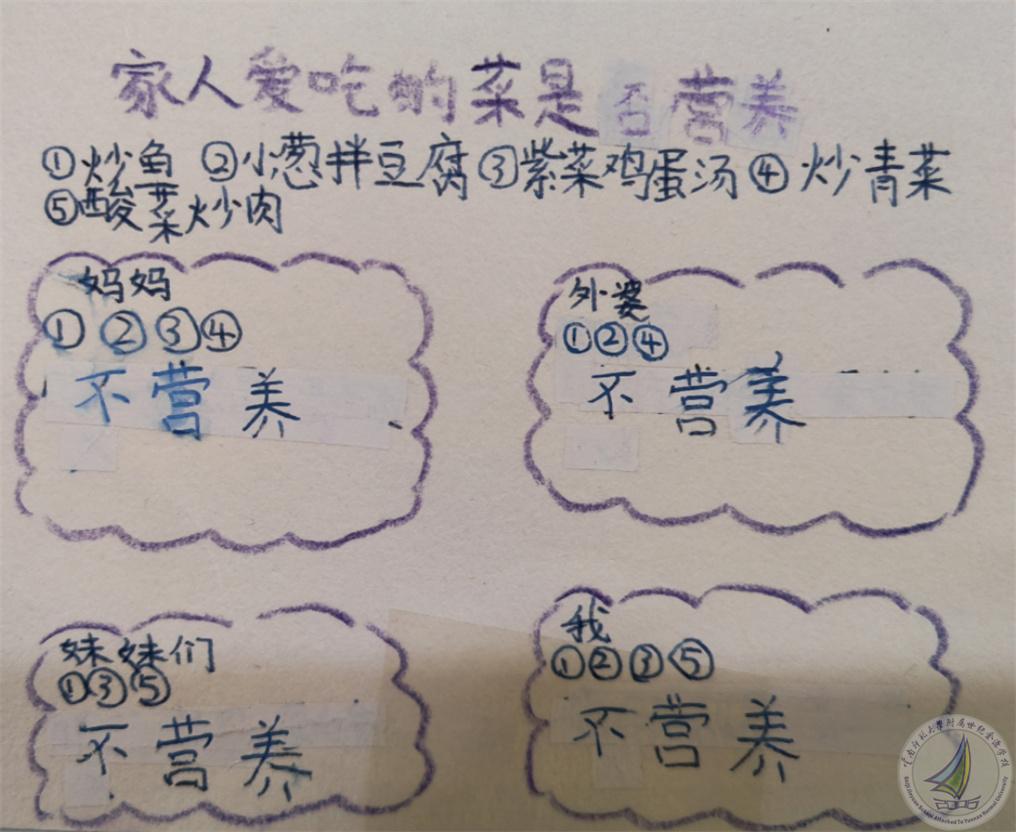 家人爱吃的菜是否营养
①炒鱼 ②小葱拌豆腐 ③紫菜鸡蛋汤 ④炒青菜
⑤酸菜炒肉
妈妈
①②③④
不营养
外婆
①②④
不营养
妹妹们
①③⑤
不营养
我
①②③⑤
不营养